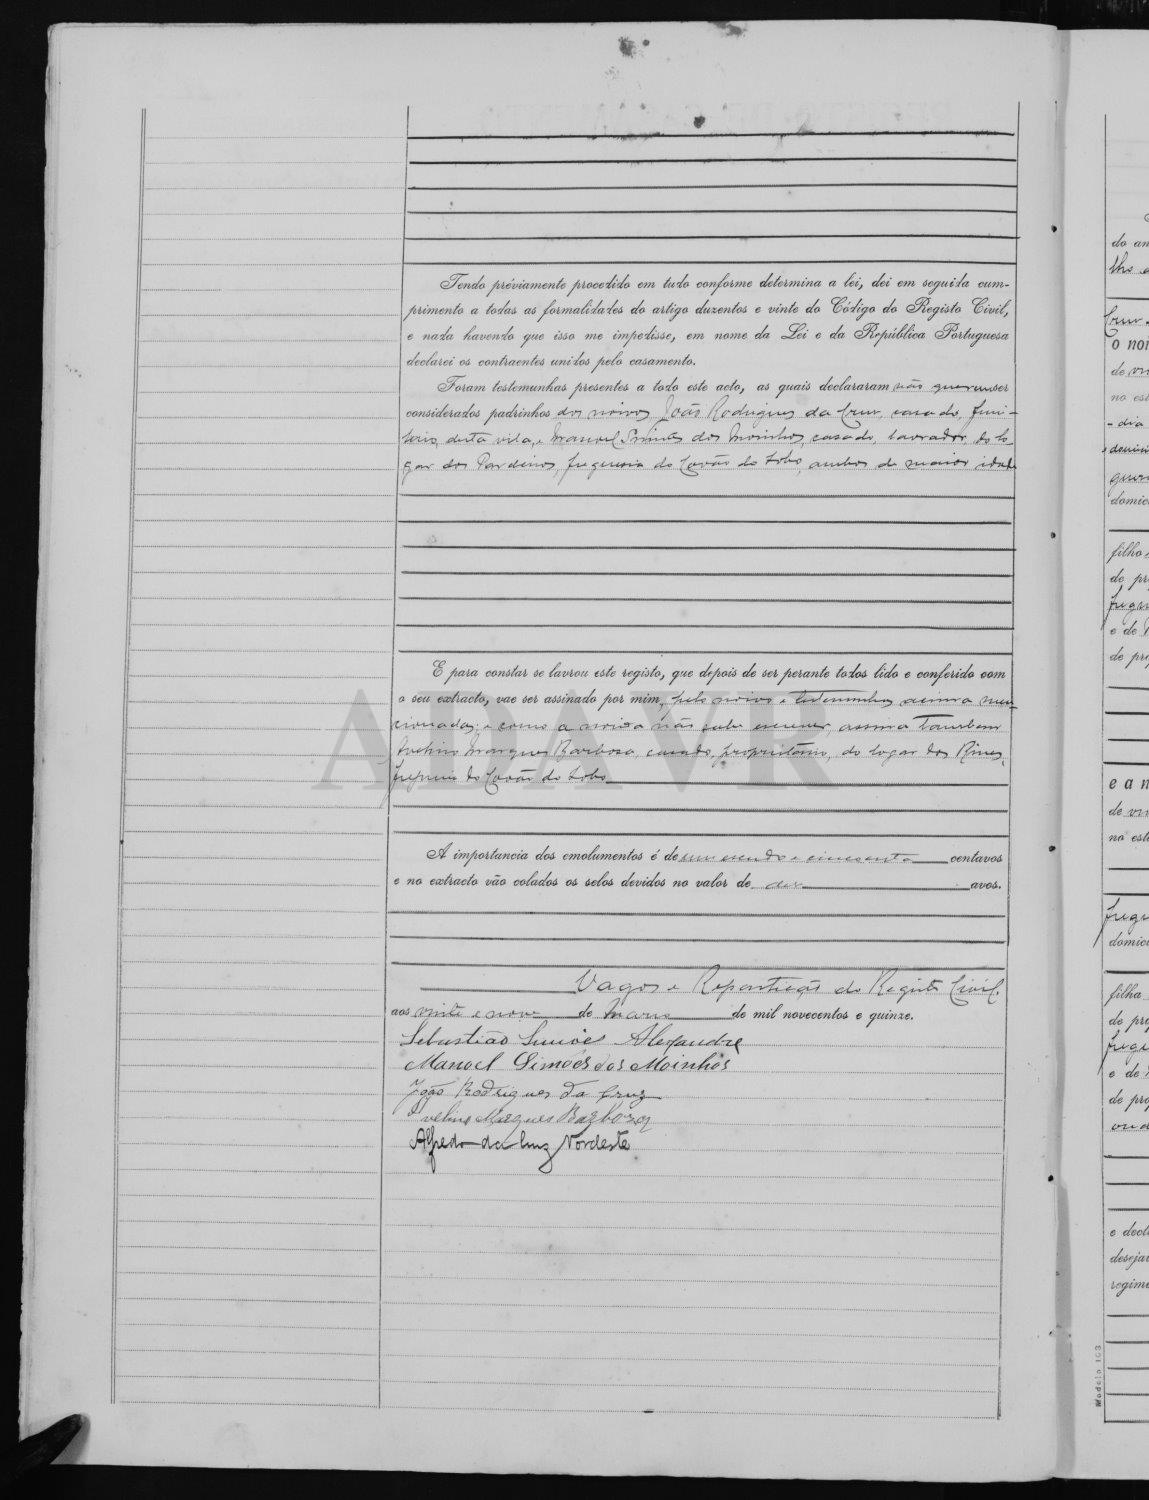 Tendo préviamente procedido em tudo conforme determina a lei, dei em seguida cum-
primento a todas as formalidades do artigo duzentos e vinte do Código do Registo Civil,
e nada havendo que isso me impedisse, em nome da Lei e da República Portuguesa
declarei os contraentes unidos pelo casamento.
Foram testemunhas presentes a todo este acto, as quais declararam não querem ser
considerados padrinhos dos noivos João Rodrigues da Cruz, casado,
desta vila, e Manoel Simões dos Moinhos, casado, lavrador, do lo-
gar dos Pardeiros, freguesia do Covão do Lobo, ambos de maior idade
E para constar se lavrou este registo, que depois de ser perante todos lido e conferido com
o seu extracto, vae ser assinado por mim, pelo noivo e testemunhas acima men-
cionadas; e como a noiva não sabe escrever, assina tambem
Avelino Marques Barbosa, casado, proprietário, do logar dos Rines,
freguesia do Covão do Lobo
A importancia dos emolumentos é de um escudo e cincoenta centavos
e no extracto vão colados os selos devidos no valor de dez avos.
Vagos e Repartição do Registo Civil.
aos vinte e nove de Março de mil novecentos e quinze.
Sebastião Simões Alexandre
Manoel Simões dos Moinhos
João Rodrigues da Cruz
Avelino Marques Barboza
Alfredo da Cruz Nordeste
ADAVR
do an
Cruz
o noi
de
no est
dia
domic
filho
de pr
e de
de pro
e a n
de
no est
domic
filha
de pro
e de
de pro
e decl
desejar
regime
Modelo 103